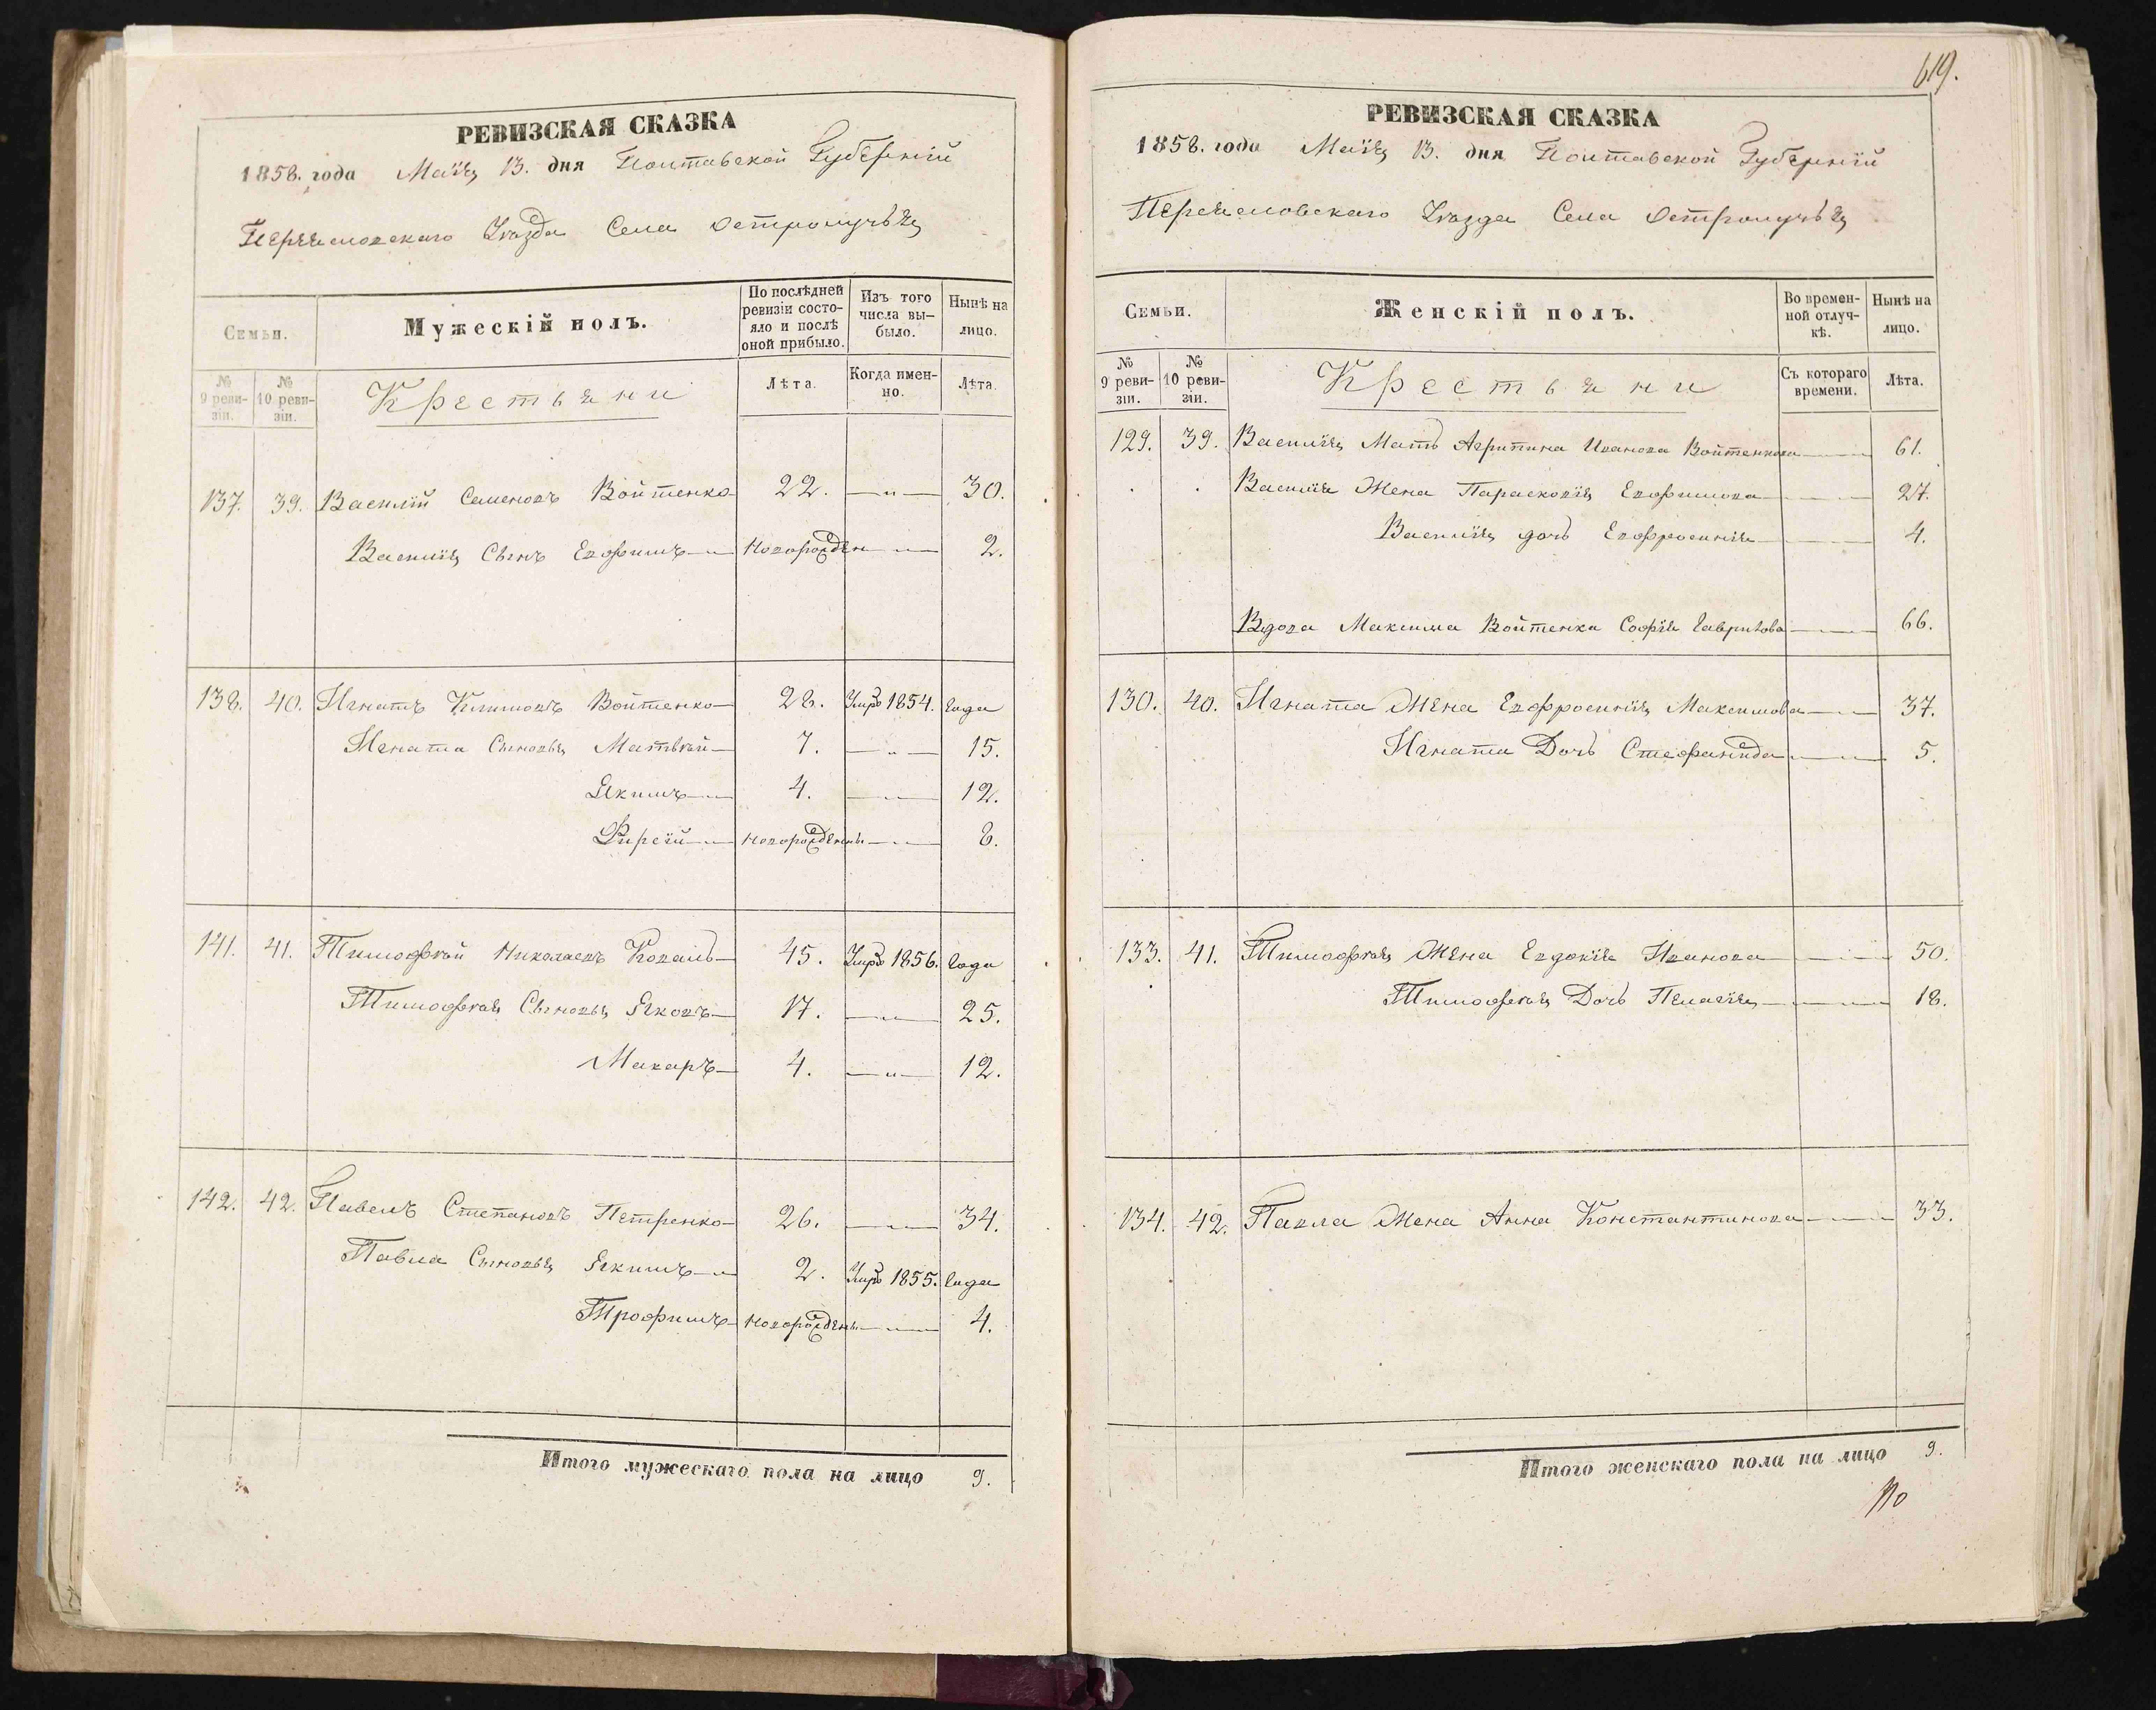 РЕВИЗСКАЯ СКАЗКА
1858. года Маія 13. дня Полтавской Губерніи
Переясловскаго Уѣзда Села Остролучья
Семьи.
Мужескій полъ.
По послѣдней ревизіи состояло и послѣ оной прибыло.
Изъ того числа выбыло.
Нынѣ на лицо.
№ 9 ревизіи.
№ 10 ревизіи.
Крестьяни
Лѣта.
Когда именно.
Лѣта.
137. 39. Василій Семеновъ Войтенко 22. —"— 30.
Василія Сынъ Евфимъ —"— новорожден —"— 2.
138. 40. Игнатъ Климовъ Войтенко 28. Умръ 1854. года
Игната Сыновья Матвѣй 7. —"— 15.
Якимъ —"— 4. —"— 12.
Фирсій —"— новорожденъ —"— 8.
141. 41. Тимофѣй Николаевъ Коваль 45. Умръ 1856. года
Тимофѣя Сыновья Яковъ 17. —"— 25.
Макаръ 4. —"— 12.
142. 42. Павелъ Степановъ Петренко 26. —"— 34.
Павла Сыновья Якимъ —"— 2. Умръ 1855. года
Трофимъ новорожденъ —"— 4.
Итого мужескаго пола на лицо 9.
619.
РЕВИЗСКАЯ СКАЗКА
1858. года Маія 13. дня Полтавской Губерніи
Переясловскаго Уѣзда Села Остролучья
Семьи.
Женскій полъ.
Во временной отлучкѣ.
Нынѣ на лицо.
№ 9 ревизіи.
№ 10 ревизіи.
Крестьяни
Съ котораго времени.
Лѣта.
129. 39. Василія Мать Агрипина Иванова Войтенкова —"— 61.
Василія Жена Парасковія Евфимова —"— 27.
Василія дочь Евфросинія —"— 4.
Вдова Максима Войтенка Софія Гаврилова —"— 66.
130. 40. Игната Жена Евфросинія Максимова —"— 37.
Игната Дочь Стефанида —"— 5.
133. 41. Тимофѣя Жена Евдокія Иванова —"— 50.
Тимофѣя Дочь Пелагія —"— 18.
134. 42. Павла Жена Анна Константинова —"— 33.
Итого женскаго пола на лицо 9.